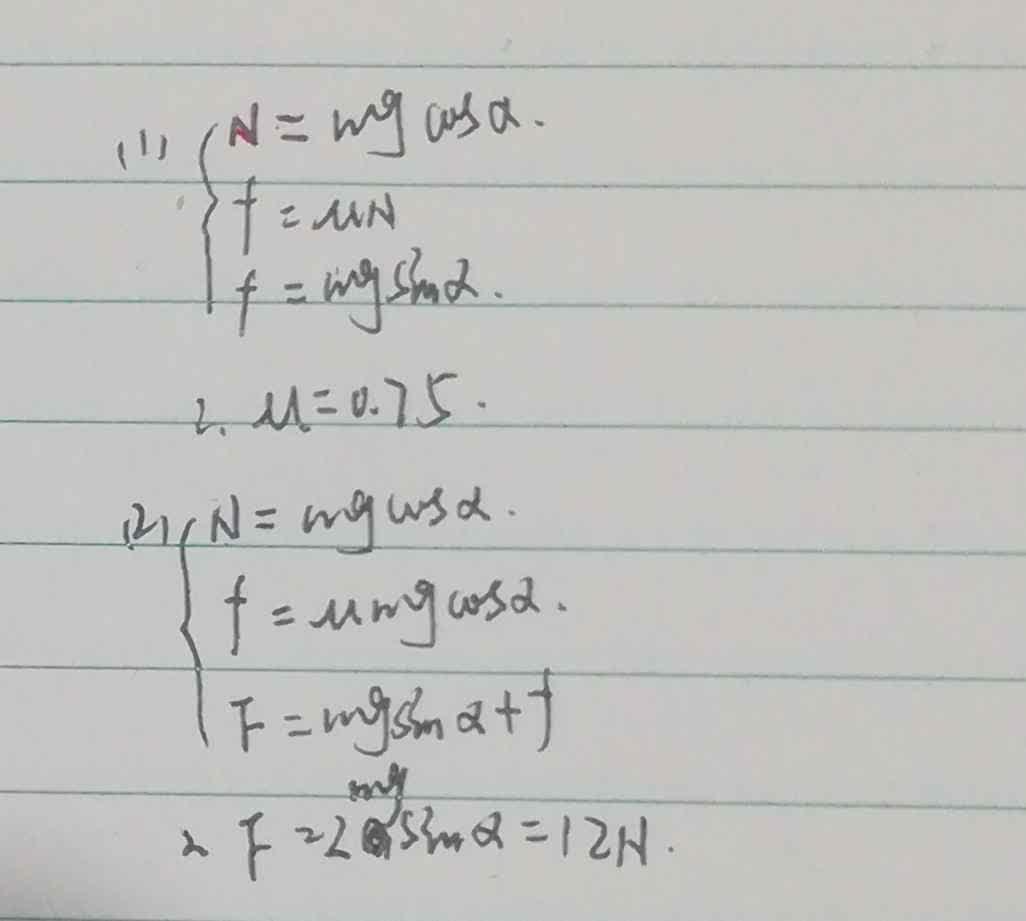 (1) { N = mg cosα.
f = μN
f = mg sinα.
∴ μ = 0.75.
(2) { N = mg cosα.
f = μmg cosα.
F = mg sinα + f
∴ F = 2mg sinα = 12N.